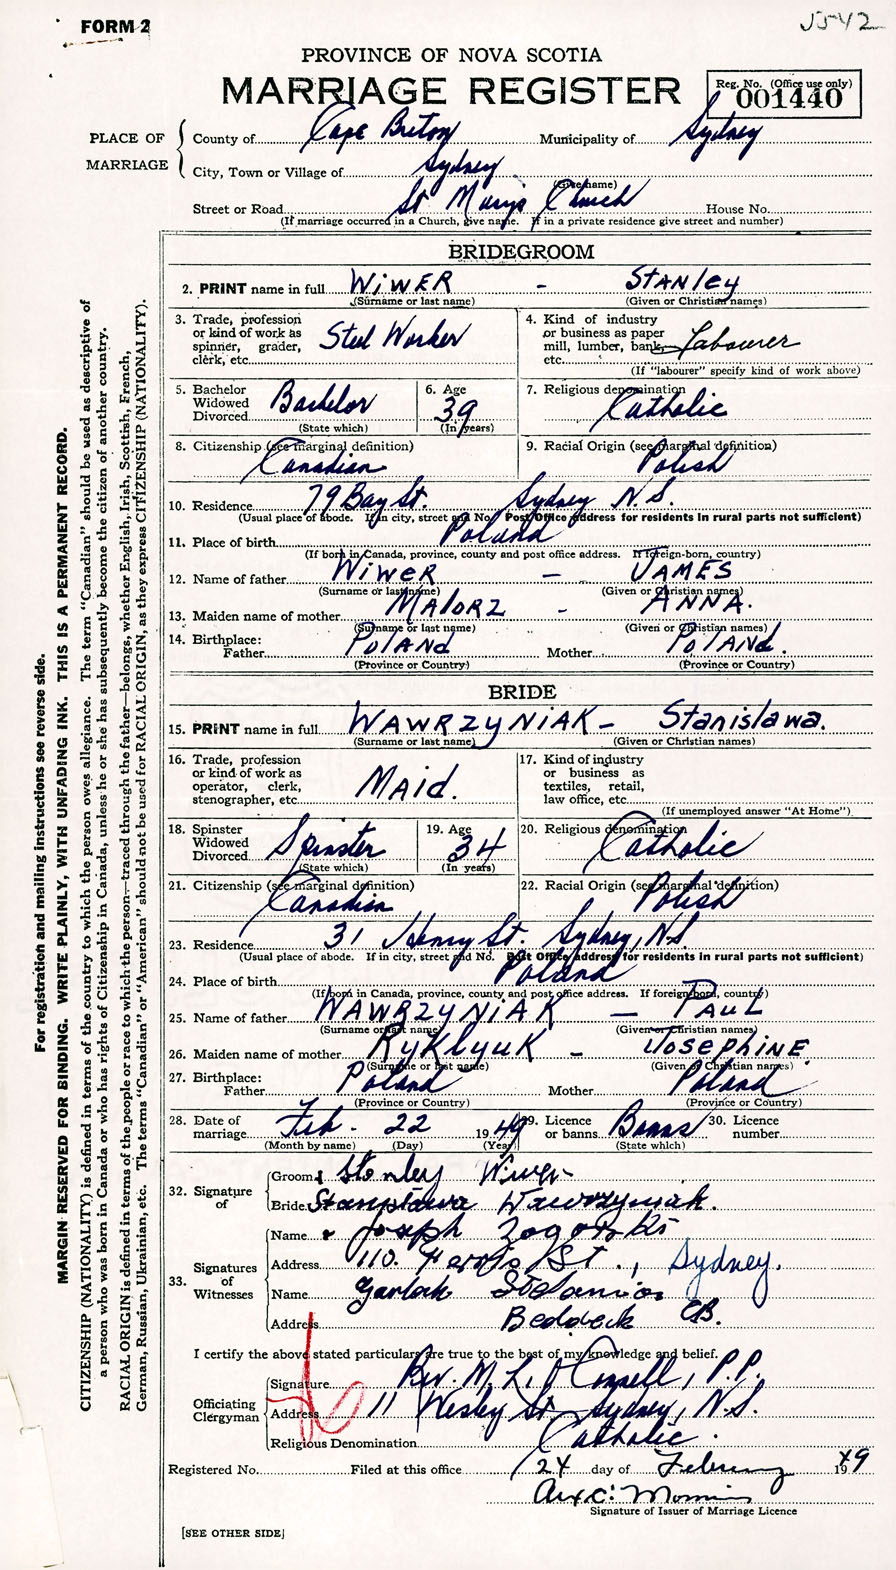 FORM 2
5542
PROVINCE OF NOVA SCOTIA
MARRIAGE REGISTER
Reg. No. (Office use only)
001440
PLACE OF MARRIAGE
County of Cape Breton Municipality of Sydney
City, Town or Village of Sydney
(Give name)
Street or Road St Mary's Church House No.
(If marriage occurred in a Church, give name. If in a private residence give street and number)
BRIDEGROOM
2. PRINT name in full WiWER - STANLEY
(Surname or last name) (Given or Christian names)
3. Trade, profession or kind of work as spinner, grader, clerk, etc. Steel Worker
4. Kind of industry or business as paper mill, lumber, bank, etc. Labourer
(If "labourer" specify kind of work above)
5. Bachelor Widowed Divorced Bachelor
(State which)
6. Age 39
(In years)
7. Religious denomination Catholic
8. Citizenship (see marginal definition) Canadian
9. Racial Origin (see marginal definition) Polish
10. Residence 79 Bay St. Sydney N.S.
(Usual place of abode. If in city, street and No. Post Office address for residents in rural parts not sufficient)
11. Place of birth Poland
(If born in Canada, province, county and post office address. If foreign-born, country)
12. Name of father WiWER - JAMES
(Surname or last name) (Given or Christian names)
13. Maiden name of mother MAJORZ - ANNA.
(Surname or last name) (Given or Christian names)
14. Birthplace: Father POLANd Mother POLANd.
(Province or Country) (Province or Country)
BRIDE
15. PRINT name in full WAWRZYNIAK - Stanislawa.
(Surname or last name) (Given or Christian names)
16. Trade, profession or kind of work as operator, clerk, stenographer, etc. MAid.
17. Kind of industry or business as textiles, retail, law office, etc.
(If unemployed answer "At Home")
18. Spinster Widowed Divorced Spinster
(State which)
19. Age 34
(In years)
20. Religious denomination Catholic
21. Citizenship (see marginal definition) Canadian
22. Racial Origin (see marginal definition) Polish
23. Residence 31 Henry St. Sydney, N.S
(Usual place of abode. If in city, street and No. Post Office address for residents in rural parts not sufficient)
24. Place of birth Poland
(If born in Canada, province, county and post office address. If foreign-born, country)
25. Name of father WAWRZYNIAK - PAUL
(Surname or last name) (Given or Christian names)
26. Maiden name of mother RyKlyuK - JOSEPHINE
(Surname or last name) (Given or Christian names)
27. Birthplace: Father Poland Mother Poland
(Province or Country) (Province or Country)
28. Date of marriage Feb. 22 1949
(Month by name) (Day) (Year)
29. Licence or banns Banns
(State which)
30. Licence number
32. Signature of
Groom Stanley Wiwer
Bride Stanisława Wawrzyniak.
33. Signatures of Witnesses
Name Joseph Zogorski
Address 110. St., Sydney.
Name
Address Beddeck CB.
I certify the above stated particulars are true to the best of my knowledge and belief.
Officiating Clergyman
Signature Rev. M. L. O'Connell, P.P.
Address 11 Wesley St Sydney, N.S.
Religious Denomination Catholic.
Registered No. Filed at this office 24 day of February 1949
Signature of Issuer of Marriage Licence
[SEE OTHER SIDE]
For registration and mailing instructions see reverse side.
MARGIN RESERVED FOR BINDING. WRITE PLAINLY, WITH UNFADING INK. THIS IS A PERMANENT RECORD.
CITIZENSHIP (NATIONALITY) is defined in terms of the country to which the person owes allegiance. The term "Canadian" should be used as descriptive of
a person who was born in Canada or who has rights of Citizenship in Canada, unless he or she has subsequently become the citizen of another country.
RACIAL ORIGIN is defined in terms of the people or race to which the person—traced through the father—belongs, whether English, Irish, Scottish, French,
German, Russian, Ukrainian, etc. The terms "Canadian" or "American" should not be used for RACIAL ORIGIN, as they express CITIZENSHIP (NATIONALITY).